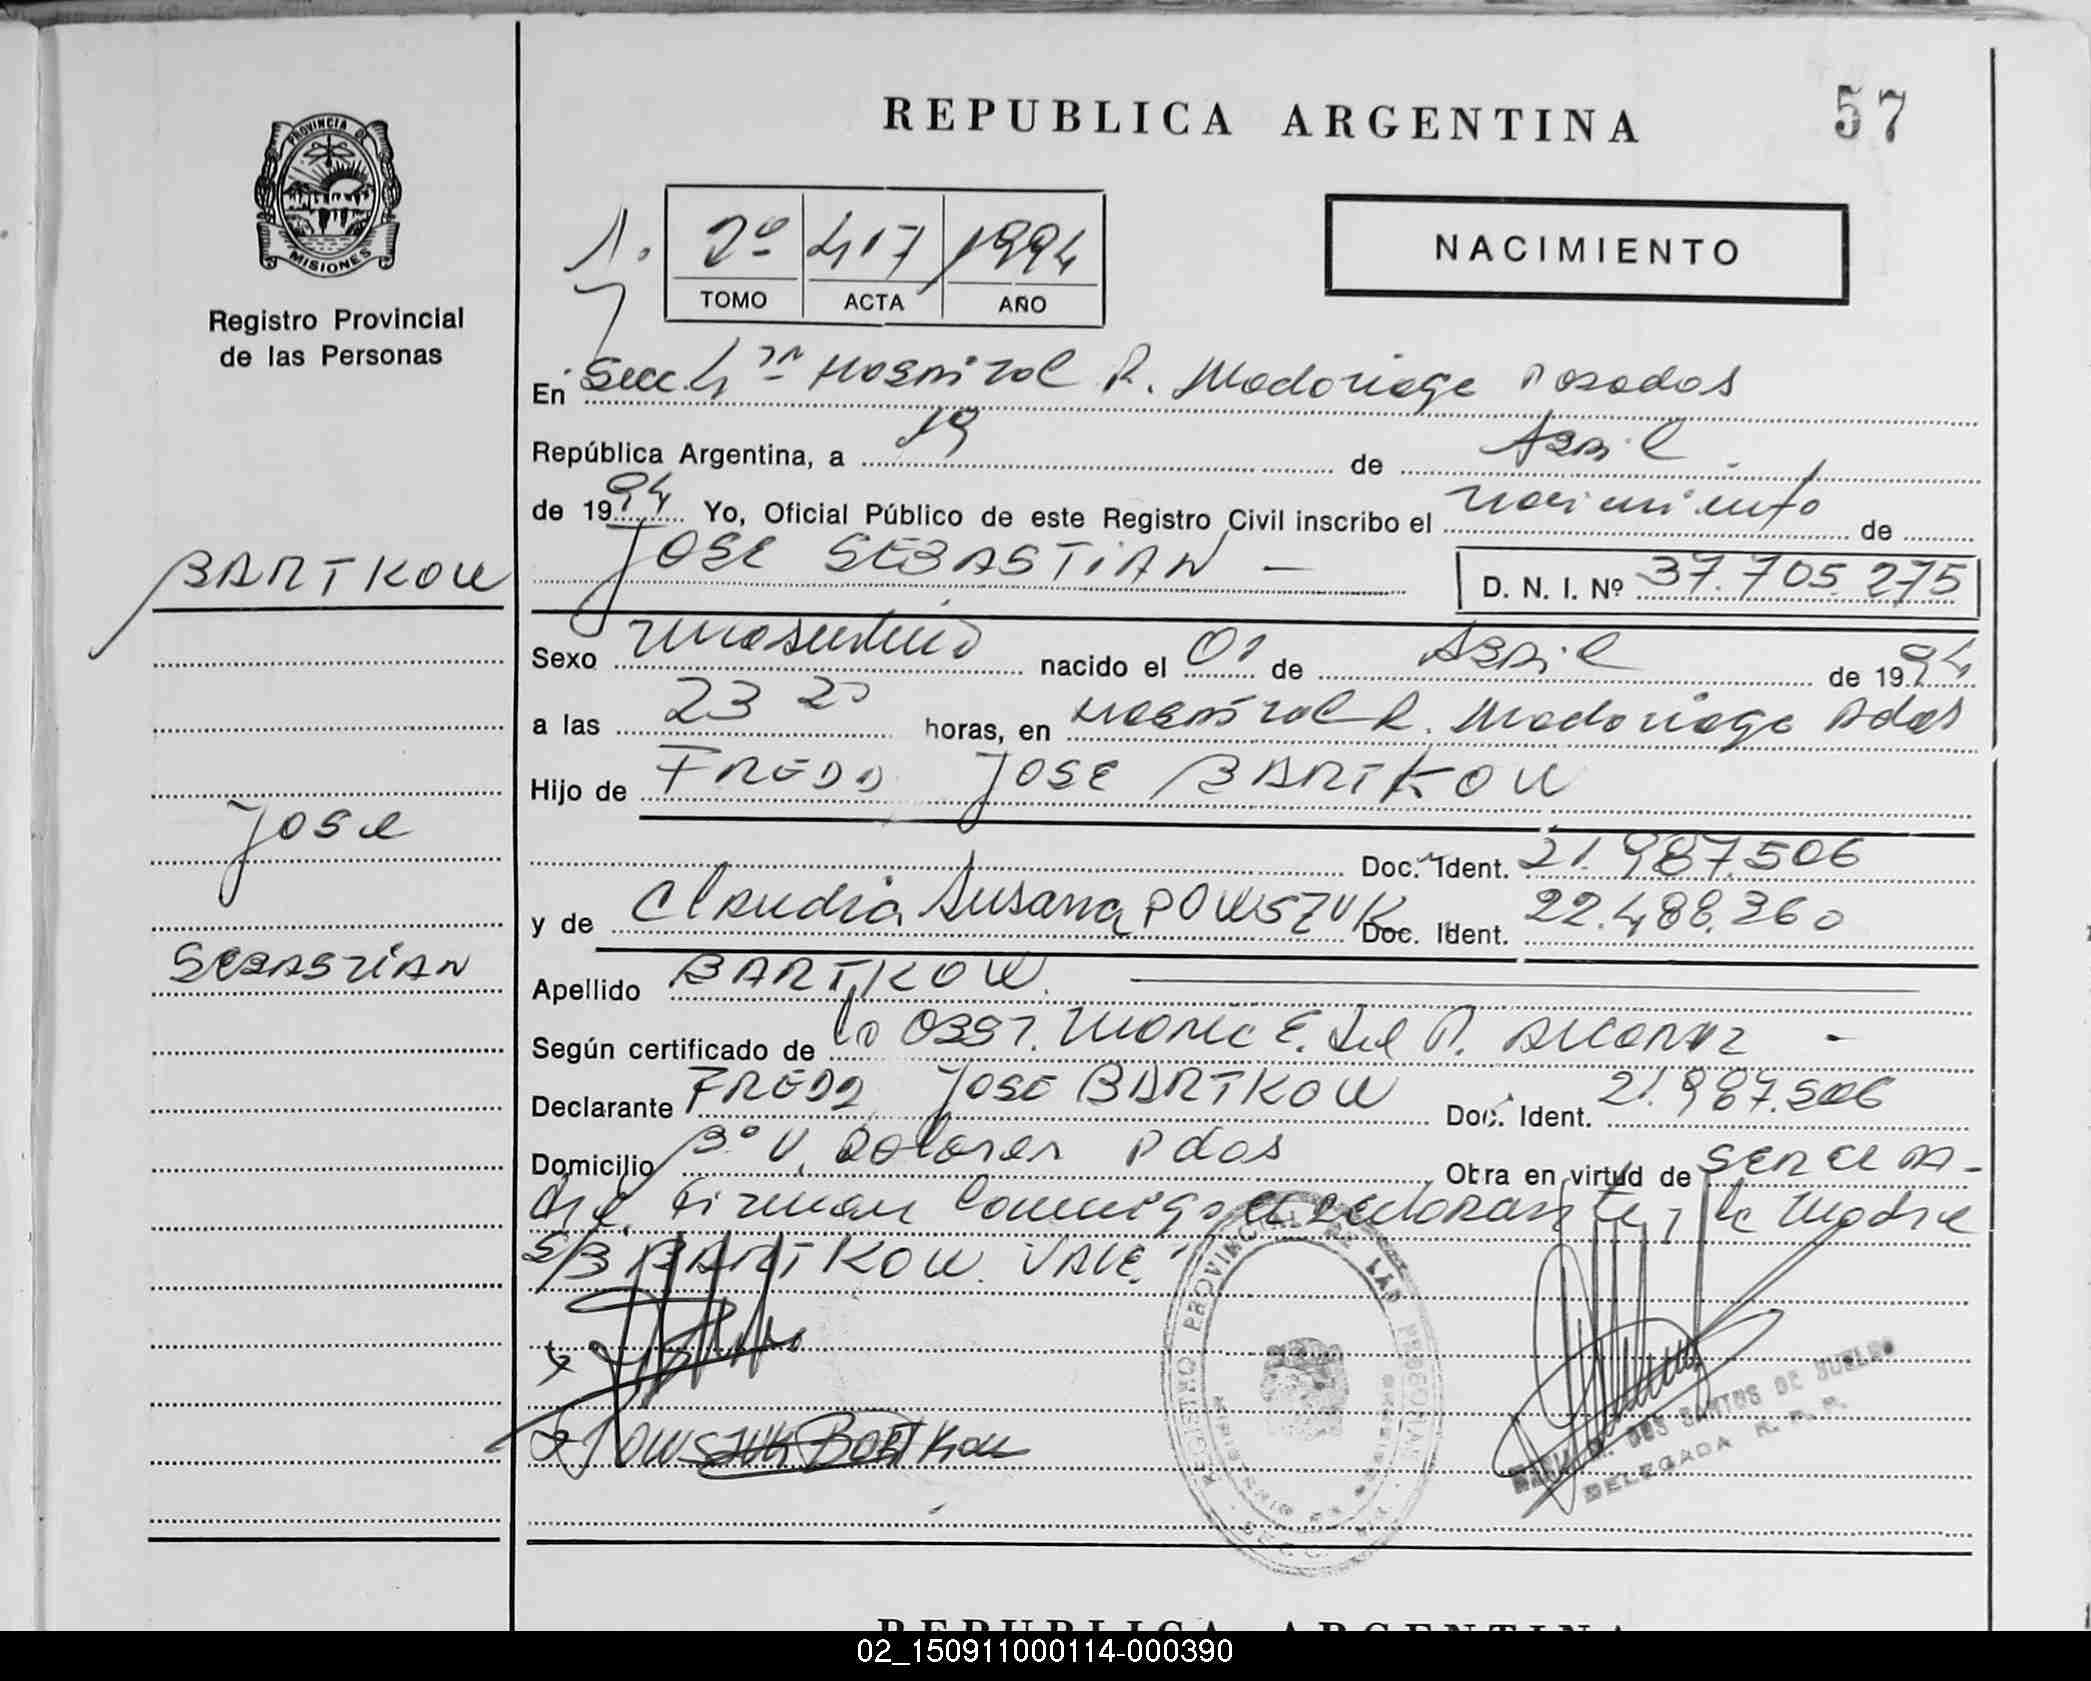 REPUBLICA ARGENTINA
57
PROVINCIA DE
MISIONES
Registro Provincial
de las Personas
2º 417 1994
TOMO ACTA AÑO
NACIMIENTO
En Secc 4ta Hospital R. Madariaga Posadas
República Argentina, a 19 de Abril
de 1994 Yo, Oficial Público de este Registro Civil inscribo el nacimiento de
JOSE SEBASTIAN —
D. N. I. Nº 37.705.275
BARTKOW
Jose
SEBASTIAN
Sexo masculino nacido el 01 de Abril de 1994
a las 23 20 horas, en Hospital R. Madariaga Pdas
Hijo de FREDD JOSE BARTKOW
Doc. Ident. 21.987.506
y de Claudia Susana POWSZUK Doc. Ident. 22.488.360
Apellido BARTKOW.
Según certificado de la OBST. E. del
Declarante FREDD JOSE BARTKOW Doc. Ident. 21.987.506
Domicilio Bº V. Dolores Pdas Obra en virtud de
Firman conmigo el declarante y la Madre
S/B BARTKOW. VALE.
POWSZUK BARTKOW
REGISTRO PROVINCIAL DE LAS PERSONAS
DOS SANTOS DE
DELEGADA R. P. P.
REPUBLICA ARGENTINA
02_150911000114-000390